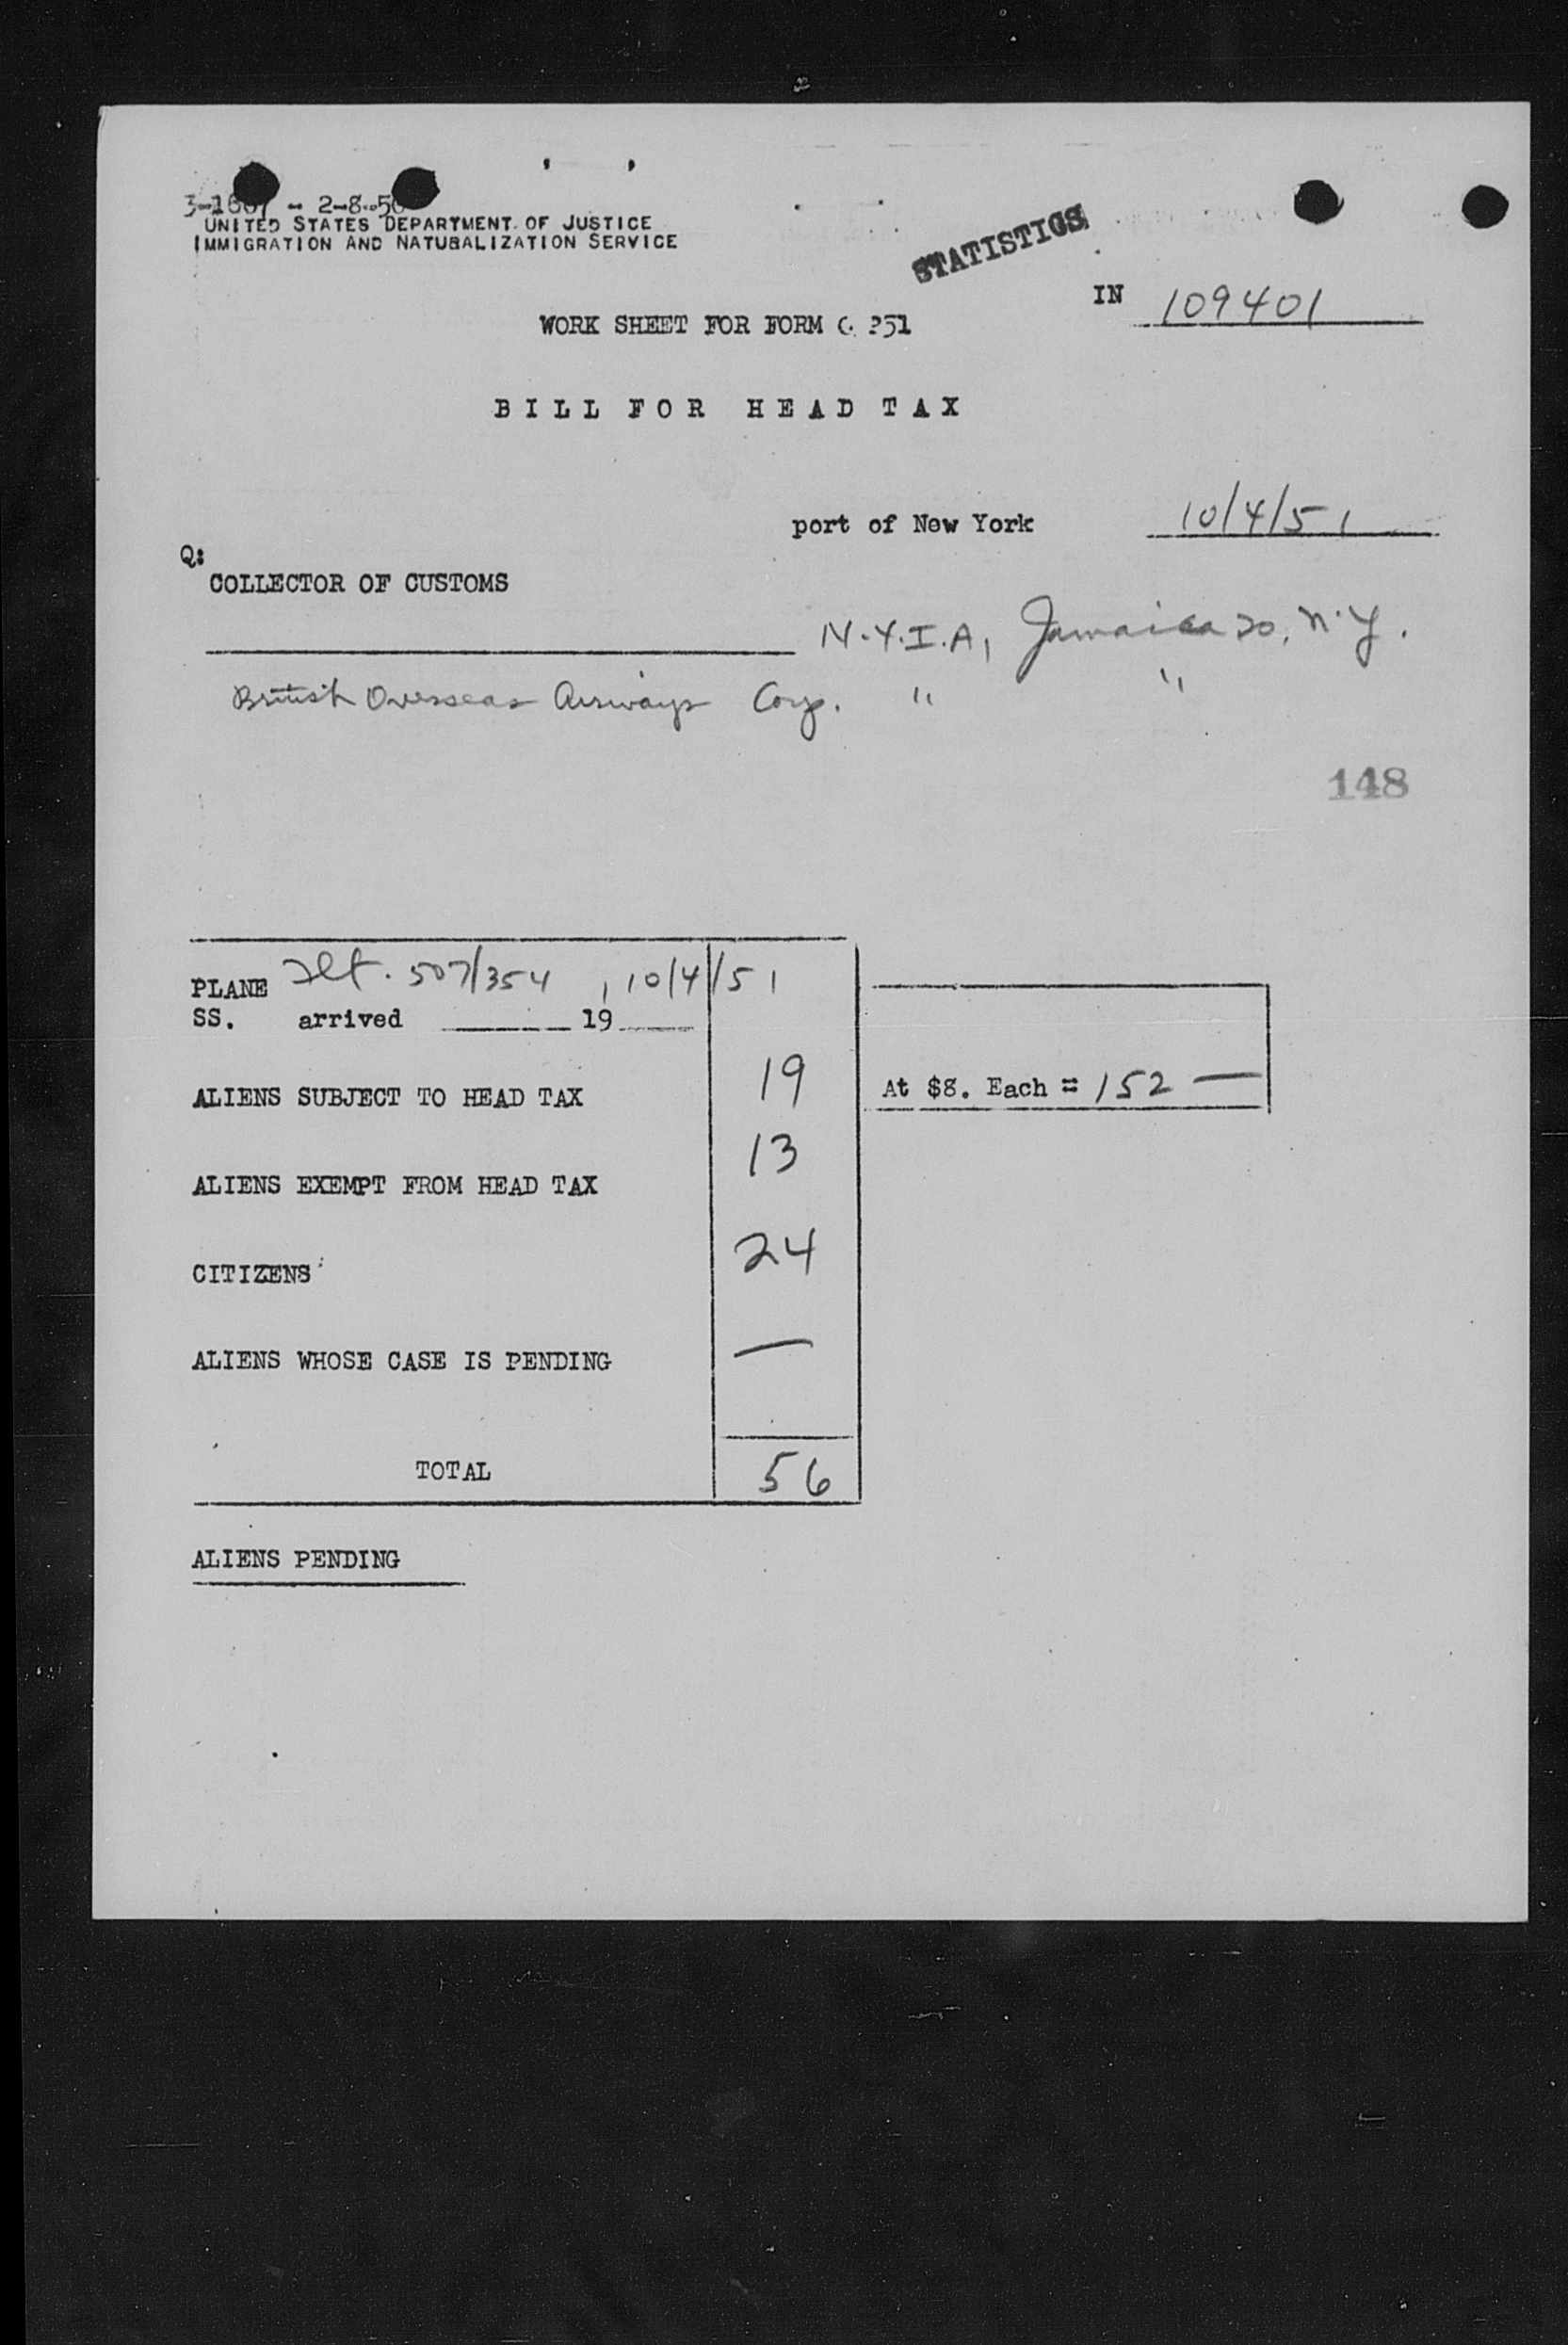 - 2-8-50
UNITED STATES DEPARTMENT OF JUSTICE
IMMIGRATION AND NATURALIZATION SERVICE
STATISTICS
IN 109401
WORK SHEET FOR FORM 351
BILL FOR HEAD TAX
port of New York 10/4/51
Q:
COLLECTOR OF CUSTOMS
N.Y.I.A, Jamaica 20, N.Y.
British Overseas Airways Corp. " "
148
PLANE Flt. 507/354 , 10/4/51
SS. arrived 19
ALIENS SUBJECT TO HEAD TAX 19 At $8. Each = 152 —
ALIENS EXEMPT FROM HEAD TAX 13
CITIZENS 24
ALIENS WHOSE CASE IS PENDING —
TOTAL 56
ALIENS PENDING